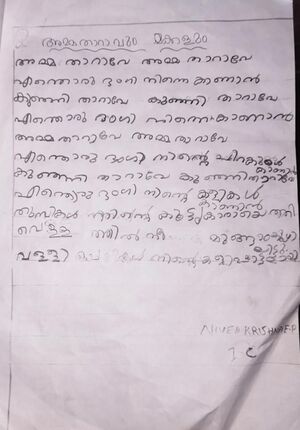 അമ്മതാറാവും മക്കളും
അമ്മ താറാവേ അമ്മ താറാവേ
എന്തൊരു ഭംഗി നിന്നെ കാണാൻ
കുഞ്ഞി താറാവേ കുഞ്ഞി താറാവേ
എന്തൊരു ഭംഗി നിന്നെ കാണാൻ
അമ്മ താറാവേ അമ്മ താറാവേ
എന്തൊരു ഭംഗി നിന്റെ ചിറകുകൾ കാണാൻ
കുഞ്ഞി താറാവേ കുഞ്ഞി താറാവേ
എന്തൊരു ഭംഗി നിന്റെ കളികൾ കാണാൻ
തുമ്പികൾ നിന്റെ കൂട്ടുകാരായെത്തി
വെള്ളത്തിൽ നീ
വള്ളി നിന്റെ
NIVED KRISHNA E.P
1 C